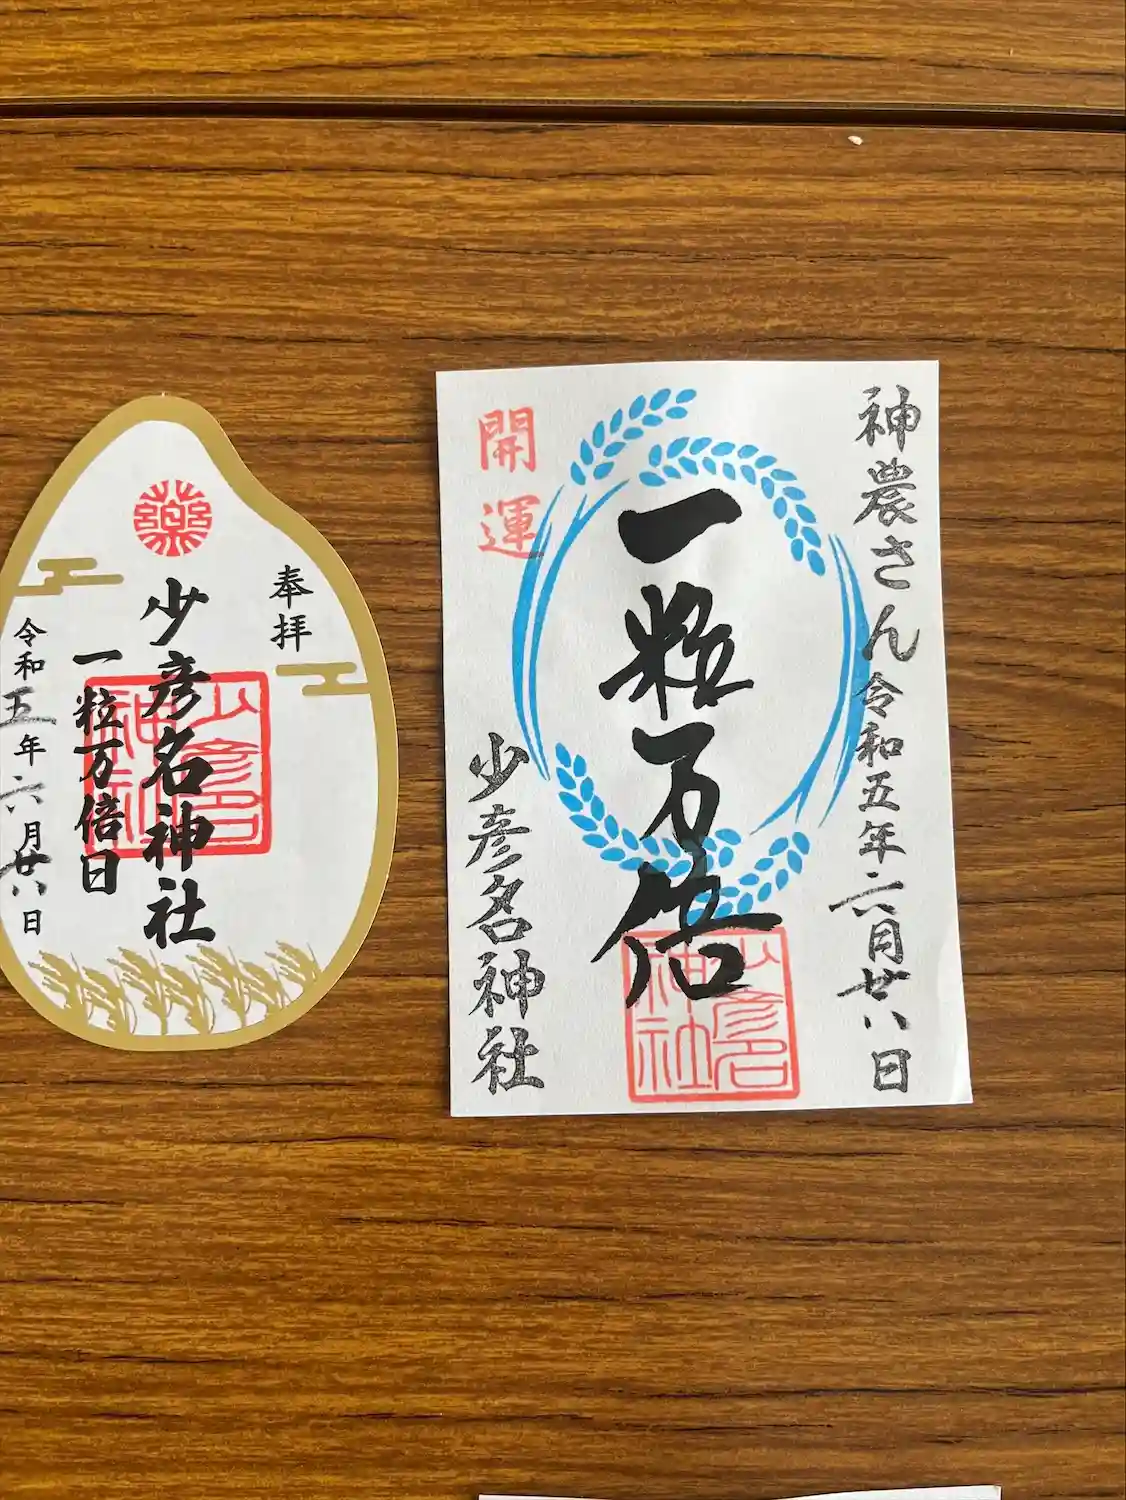 薬
奉拝
少彦名神社
一粒万倍日
令和五年六月廿八日
少彦名
神社
神農さん 令和五年六月廿八日
一粒万倍
開運
少彦名神社
少彦名
神社